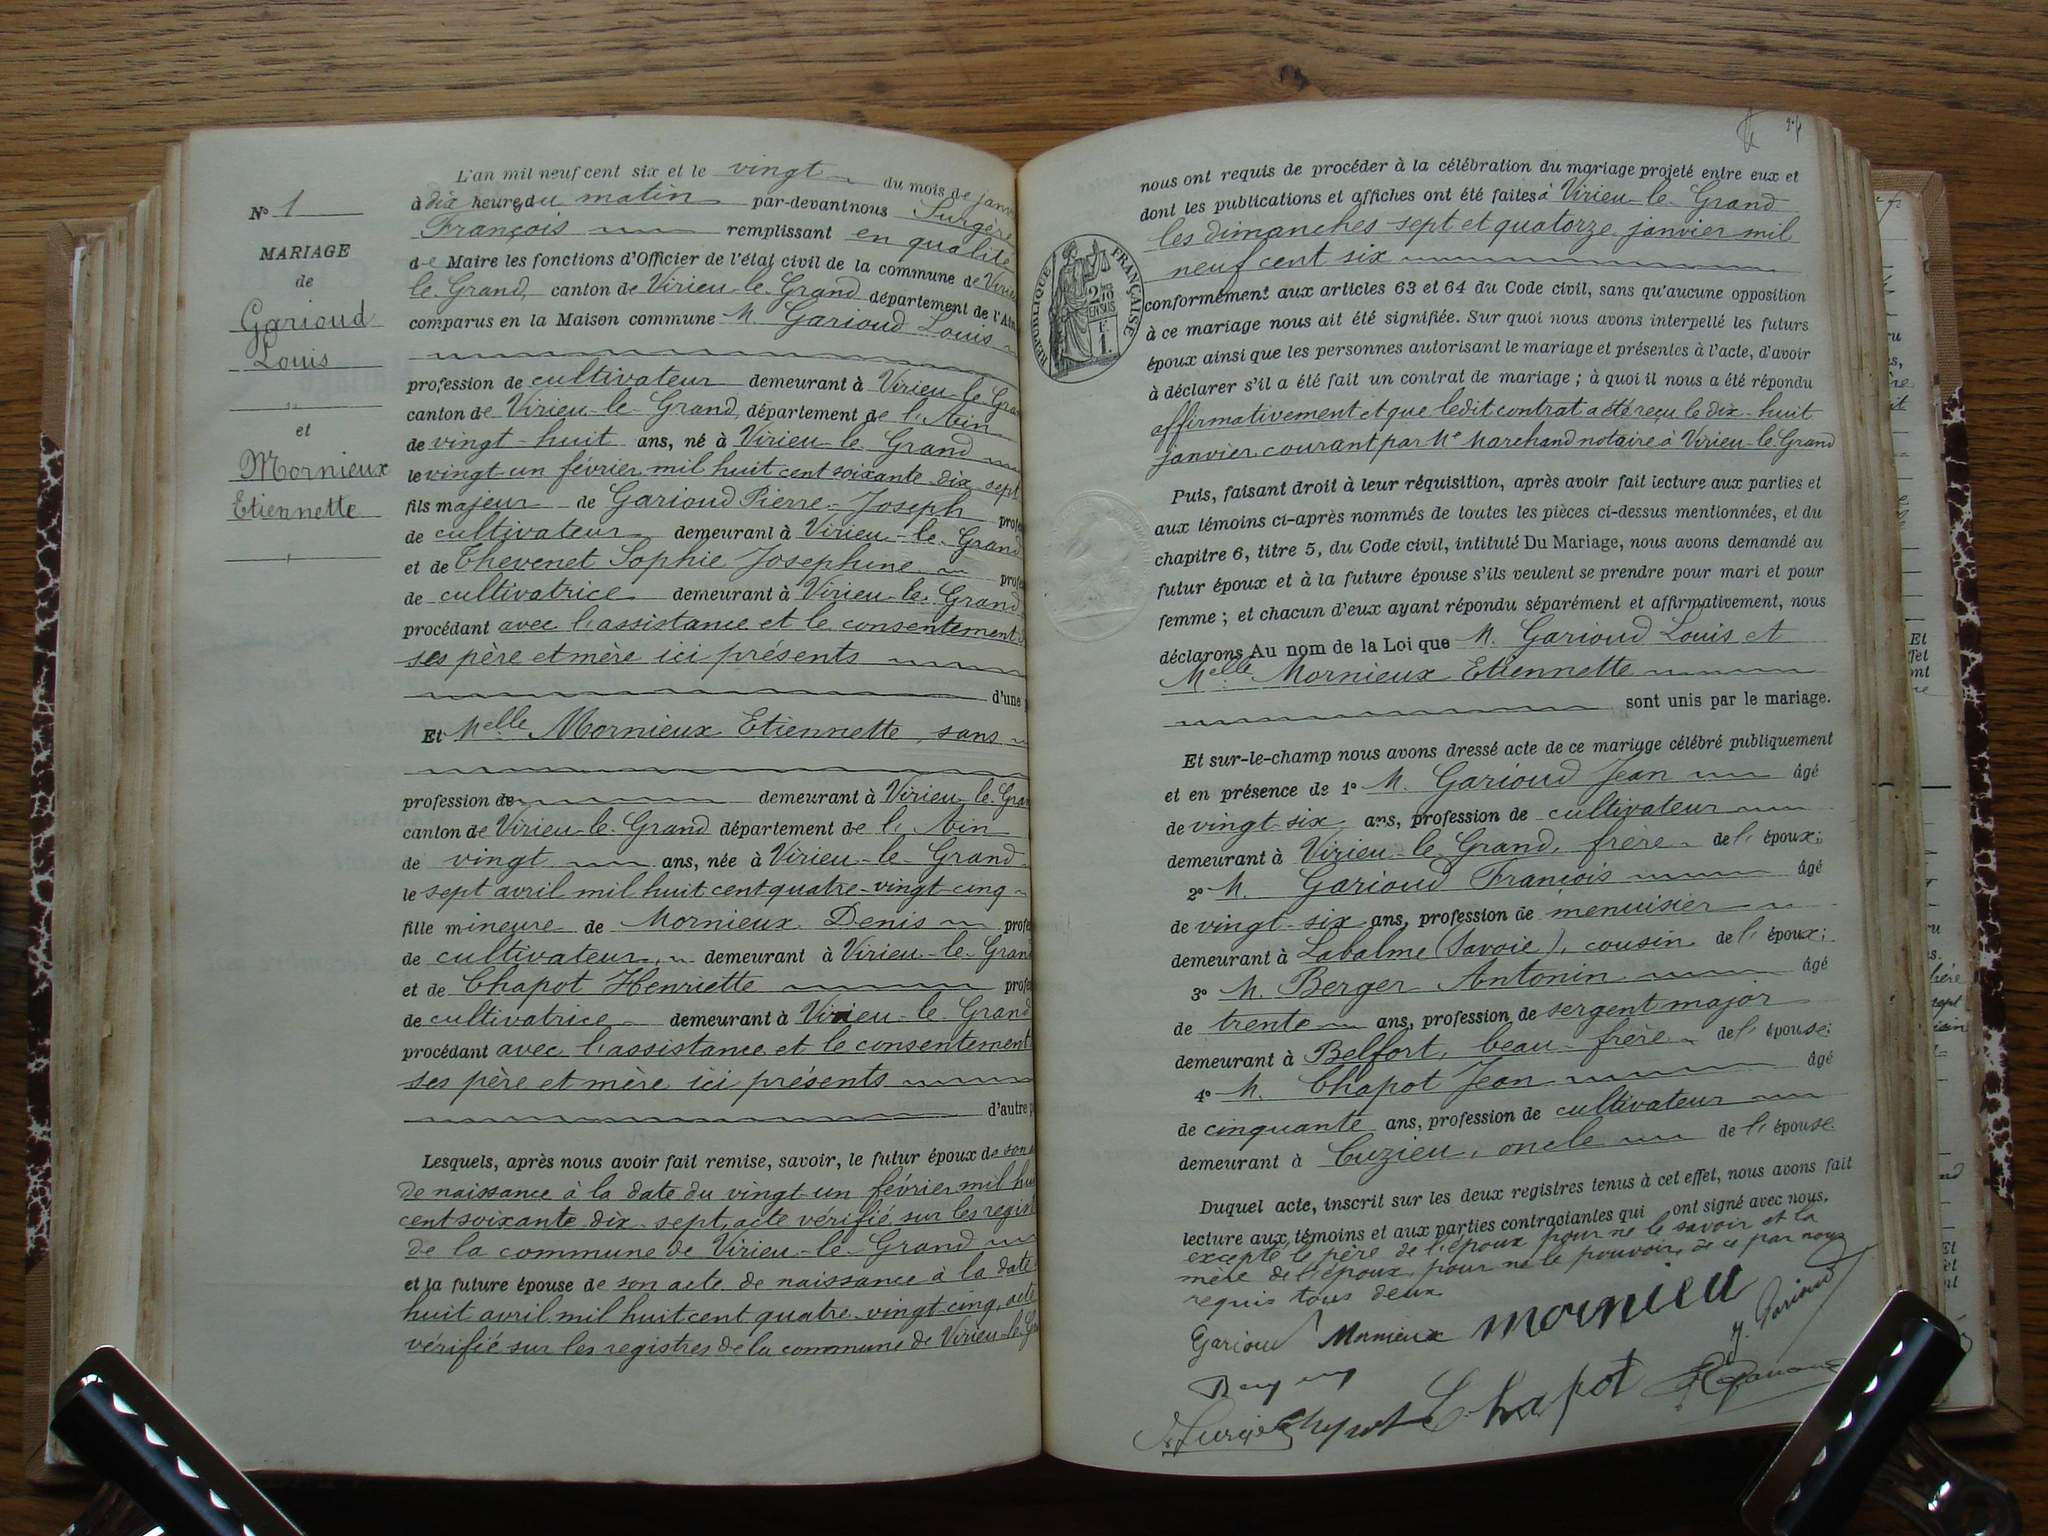 N° 1
MARIAGE
de
Garioud
Louis
et
Mornieux
Etiennette
L'an mil neuf cent six et le vingt du mois de janv
à dix heures du matin par-devant nous Surgère
François remplissant en qualité
de Maire les fonctions d'Officier de l'état civil de la commune de Virieu
le-Grand, canton de Virieu-le-Grand département de l'Ain
comparus en la Maison commune M. Garioud Louis
profession de cultivateur demeurant à Virieu-le-Gran
canton de Virieu-le-Grand, département de l'Ain
de vingt-huit ans, né à Virieu-le-Grand
le vingt-un février mil huit cent soixante-dix-sept
fils majeur de Garioud Pierre-Joseph profes
de cultivateur demeurant à Virieu-le-Grand
et de Thevenet Sophie Josephine profes
de cultivatrice demeurant à Virieu-le-Grand
procédant avec l'assistance et le consentement
ses père et mère ici présents
d'une p
Et Melle Mornieux Etiennette, sans
profession de demeurant à Virieu-le-Gran
canton de Virieu-le-Grand département de l'Ain
de vingt ans, née à Virieu-le-Grand
le sept avril mil huit cent quatre-vingt-cinq
fille mineure de Mornieux Denis profes
de cultivateur, demeurant à Virieu-le-Grand
et de Chapot Henriette profes
de cultivatrice demeurant à Virieu-le-Grand
procédant avec l'assistance et le consentement
ses père et mère ici présents
d'autre p
Lesquels, après nous avoir fait remise, savoir, le futur époux de son
de naissance à la date du vingt-un février mil hui
cent soixante-dix-sept, acte vérifié sur les regist
de la commune de Virieu-le-Grand
et la future épouse de son acte de naissance à la date
huit avril mil huit cent quatre-vingt-cinq, acte
vérifié sur les registres de la commune de Virieu-le-Gra
24
nous ont requis de procéder à la célébration du mariage projeté entre eux et
dont les publications et affiches ont été faites à Virieu-le-Grand
les dimanches sept et quatorze janvier mil
neuf cent six
RÉPUBLIQUE FRANÇAISE
2/10 EN SUS
1 F.
conformément aux articles 63 et 64 du Code civil, sans qu'aucune opposition
à ce mariage nous ait été signifiée. Sur quoi nous avons interpellé les futurs
époux ainsi que les personnes autorisant le mariage et présentes à l'acte, d'avoir
à déclarer s'il a été fait un contrat de mariage ; à quoi il nous a été répondu
affirmativement et que ledit contrat a été reçu le dix-huit
janvier courant par Me Marchand notaire à Virieu-le-Grand
Puis, faisant droit à leur réquisition, après avoir fait lecture aux parties et
aux témoins ci-après nommés de toutes les pièces ci-dessus mentionnées, et du
chapitre 6, titre 5, du Code civil, intitulé Du Mariage, nous avons demandé au
futur époux et à la future épouse s'ils veulent se prendre pour mari et pour
femme ; et chacun d'eux ayant répondu séparément et affirmativement, nous
déclarons Au nom de la Loi que M. Garioud Louis et
Melle Mornieux Etiennette
sont unis par le mariage.
Et sur-le-champ nous avons dressé acte de ce mariage célébré publiquement
et en présence de 1° M. Garioud Jean âgé
de vingt-six ans, profession de cultivateur
demeurant à Virieu-le-Grand, frère de l'époux;
2° M. Garioud François âgé
de vingt-six ans, profession de menuisier
demeurant à Labalme (Savoie), cousin de l'époux;
3° M. Berger Antonin âgé
de trente ans, profession de sergent major
demeurant à Belfort, beau-frère de l'épouse;
4° M. Chapot Jean âgé
de cinquante ans, profession de cultivateur
demeurant à Cuzieu, oncle de l'épouse
Duquel acte, inscrit sur les deux registres tenus à cet effet, nous avons fait
lecture aux témoins et aux parties contractantes qui ont signé avec nous.
excepté le père de l'époux pour ne le savoir et la
mère de l'époux pour ne le pouvoir, de ce par nous
requis tous deux
Garioud Mornieux mornieu J. Garioud
Berger
Surgère Chapot Chapot